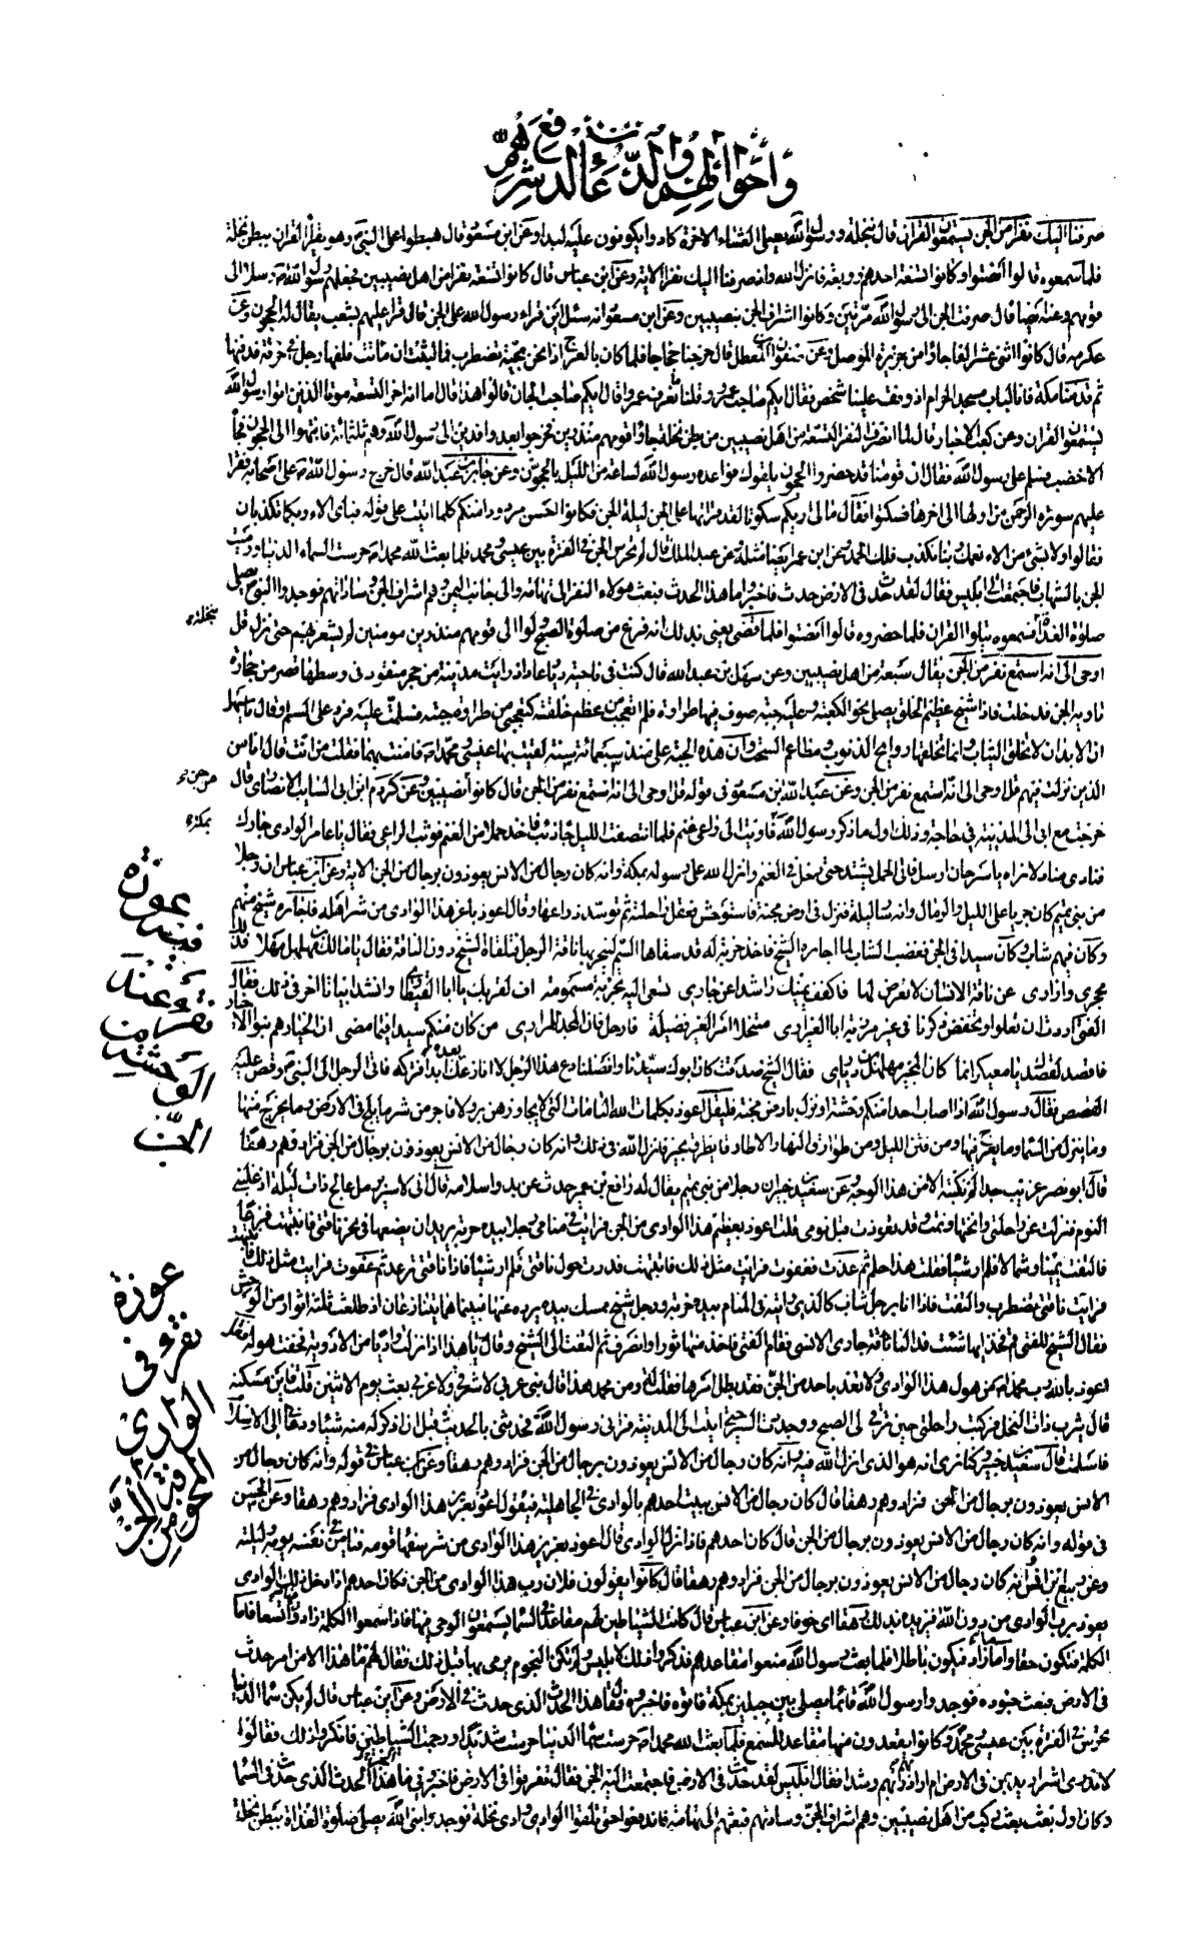 وأحوالهم والدعاء لدفع شرهم
صرفنا اليك نفرا من الجن يستمعون القران قال بنخلة ورسول الله يصلي العشاء الاخرة كادوا يكونون عليه لبدا وعن ابن مسعود قال هبطوا على النبي وهو يقرأ القران ببطن نخلة
فلما سمعوه قالوا انصتوا وكانوا تسعة احدهم زوبعة فانزل الله واذ صرفنا اليك نفرا الاية وعن ابن عباس قال كانوا تسعة نفر من اهل نصيبين فجعلهم رسول الله رسلا الى
قومهم وعنه ايضا قال صرفت الجن الى رسول الله مرتين وكانوا اشراف الجن بنصيبين وعن ابن مسعود انه سئل اين قراء رسول الله على الجن قال قرا عليهم بشعب يقال له الحجون وعن
عكرمه قال كانوا اثنى عشر الفا جاؤا من جزيرة الموصل وعن صفوان المعطل قال خرجنا حجاجا فلما كان بالعرج اذا نحن بحية تضطرب فما لبثت ان ماتت فلفها رجل في خرقة فدفنها
ثم قدمنا مكة فانا لبا مسجد الحرام اذ وقف علينا شخص فقال ايكم صاحب عمرو وقلنا ما نعرف عمروا قال ايكم صاحب الجان قالوا هذا قال اما انه اخر التسعة موتا الذين اتوا رسول الله
يستمعون القران وعن كعب الاحبار قال لما انصرف النفر التسعة من اهل نصيبين من بطن نخلة جاؤا قومهم منذرين فخرجوا بعد وافدين الى رسول الله وهم ثلثمائة فانتهوا الى الحجون فجا
الاخضب فسلم على رسول الله فقال ان قومنا قد حضروا الحجون يلقوك فواعده رسول الله لساعة من الليل بالحجون وعن جابر بن عبد الله قال خرج رسول الله على اصحابه فقرا
عليهم سورة الرحمن من اولها الى اخرها فسكتوا فقال مالى اريكم سكوتا لقد قراتها على الجن ليلة الجن فكانوا احسن مردودا منكم كلما اتيت على قوله فباى الاء ربكما تكذبان
فقالوا ولا بشئ من الاء نعمك ربنا نكذب فلك الحمد وعن ابن عمر ايضا مثله وعن عبد الملك قال لم تحرس الجن في الفترة بين عيسى ومحمد فلما بعث الله محمدا حرست السماء الدنيا ورميت
الجن بالشهاب فاجتمعت الى ابليس فقال لقد حدث فى الارض حدث فاخبروا ما هذا الحدث فبعث هولاء النفر الى تهامة والى جانب اليمن وهم اشراف الجن وساداتهم فوجدوا النبي يصلي
صلوة الغداة فسمعوه يتلوا القران فلما حضروه قالوا انصتوا فلما قضى يعنى بذلك انه فرغ من صلوة الصبح ولوا الى قومهم منذرين مومنين لم يشعر بهم حتى نزل قل
بنخلة
اوحى الى انه استمع نفر من الجن يقال سبعة من اهل نصيبين وعن سهل بن عبد الله قال كنت فى ناحية ديار عاد اذ رايت مدينة من حجر منقور فى وسطها قصر من حجارة
تاويه الجن فدخلت فاذا شيخ عظيم الخلق يصلي نحو الكعبة وعليه جبة صوف فيها طراوة فلم اتعجب من عظم خلقته كتعجبي من طراوة جبته فسلمت عليه فرد على السلم وقال يا سهل
ان الابدان لا تخلق الثياب وانما تخلقها روايح الذنوب ومطاعم السحت وان هذه الجبة على منذ سبعمائة سنة لقيت بها عيسى ومحمدا فامنت بهما فقلت من انت قال انا من
الذين نزلت فيهم قل اوحى الى انه استمع نفر من الجن وعن عبد الله بن مسعود فى قوله قل اوحى الى انه استمع نفر من الجن قال كانوا من جن نصيبين وعن كردم ابن ابى السايب الانصاري قال
خرجت مع ابى الى المدينة فى حاجة وذلك اول ما ذكر رسول الله فاوينا الى راعى غنم فلما انتصف الليل جاء ذئب فاخذ حملا من الغنم فوثب الراعى فقال يا عامر الوادى جارك
بمكة
فنادى مناد لا نراه يا سرحان ارسله فاتى الحمل يشتد حتى دخل فى الغنم وانزل الله على رسوله بمكة وانه كان رجال من الانس يعوذون برجال من الجن الاية وعن ابن عباس ان رجلا
من بنى تميم كان جريا على الليل والرمال وانه سار ليلة فنزل فى ارض مجنة فاستوحش فعقل راحلته ثم توسد ذراعها وقال اعوذ باعز هذا الوادى من شر اهله فاجاره شيخ منهم
وكان فيهم شاب وكان سيدا فى الجن فغضب الشاب لما اجاره الشيخ فاخذ حربة له قد سقاها السم لينحر بها ناقة الرجل فتلقاه الشيخ دون الناقة فقال يا مالك بن مهلهل مهلا فذلك
محجرى وازارى عن ناقة الانسان لا تعرض لها فاكفف يمينك راشدا عن جارى تسعى اليه بحربة مسمومة اف لقربك يا ابا القيطار وانشد ابياتا اخر فى ذلك فقال
الفتى اردت ان تعلو وتخفض ذكرنا فى غير مزرية ابا الغيرارى متنحلا امرا لغير فضيلة فارحل فان المجد للمرادى من كان منكم سيدا فيما مضى ان الخيار هم بنو الاخيار
فاقصد لقصدك يا معيكر انما كان المجير مهلهل بن ديارى فقال الشيخ صدقت كان ابوك سيدنا وافضلنا دع هذا الرجل لا انازعك بعده ابدا فتركه فاتى الرجل الى النبي وقص عليه
القصص فقال رسول الله اذا اصاب احدا منكم وحشة او نزل بارض مجنة فليقل اعوذ بكلمات الله التامات التى لا يجاوزهن بر ولا فاجر من شر ما يلج فى الارض وما يخرج منها
وما ينزل من السماء وما يعرج فيها ومن فتن الليل ومن طوارق النهار الا طارقا يطرق بخير فانزل الله فى ذلك وانه كان رجال من الانس يعوذون برجال من الجن فزادوهم رهقا
قال ابو نصر غريب جدا لم نكتبه الا من هذا الوجه وعن سعيد بن جبير ان رجلا من بنى تميم يقال له رافع بن عمير حدث عن بدو اسلامه قال انى لاسير برمل عالج ذات ليلة اذ غلبنى
النوم فنزلت عن راحلتى وانختها ونمت وقد تعوذت قبل نومى فقلت اعوذ بعظيم هذا الوادى من الجن فرايت فى منامى رجلا بيده حربة يريد ان يضعها فى نحر ناقتى فانتبهت فزعا
فالتفت يمينا وشمالا فلم ار شيئا فقلت هذا حلم ثم عدت فغفوت فرايت مثل ذلك فانتبهت فدرت حول ناقتى فلم ار شيئا فاذا ناقتى ترعد ثم غفوت فرايت مثل ذلك فانتبهت
فرايت ناقتى تضطرب والتفت فاذا انا برجل شاب كالذى رايته فى المنام بيده حربة ورجل شيخ ممسك بيده يرده عنها فبينما هما يتنازعان اذ طلعت ثلثة اثوار من الوحش
فقال الشيخ للفتى قم فخذ ايها شئت فداء لناقة جارى الانسى فقام الفتى فاخذ منها ثورا وانصرف ثم التفت الى الشيخ وقال يا هذا اذا نزلت واديا من الاودية فخفت هوله فقل
اعوذ بالله رب محمد من هول هذا الوادى ولا تعذ باحد من الجن فقد بطل امرها فقلت له ومن محمد هذا قال نبى عربى لا شرقى ولا غربى بعث يوم الاثنين قلت فاين مسكنه
قال يثرب ذات النخل فركبت راحلتى حين ترقى لى الصبح وجددت السير حتى اتيت الى المدينة فرانى رسول الله فحدثنى بالحديث قبل ان اذكر له منه شيئا ودعانى الى الاسلام
فاسلمت قال سعيد بن جبير وكنا نرى انه هو الذى انزل الله فيه وانه كان رجال من الانس يعوذون برجال من الجن فزادوهم رهقا وعن ابن عباس فى قوله وانه كان رجال من
الانس يعوذون برجال من الجن فزادوهم رهقا قال كان رجال من الانس يبيت احدهم بالوادى فى الجاهلية فيقول اعوذ بعزيز هذا الوادى فزادوهم رهقا وعن الحسن
فى قوله وانه كان رجال من الانس يعوذون برجال من الجن قال كان احدهم فاذا نزل الوادى قال اعوذ بعزيز هذا الوادى من شر سفهاء قومه فيامن فى نفسه يومه وليلته
وعن ربيع بن انس انه كان رجال من الانس يعوذون برجال من الجن فزادوهم رهقا قال كانوا يقولون فلان رب هذا الوادى من الجن فكان احدهم اذا دخل ذلك الوادى
يعوذ برب الوادى من دون الله فيزيده بذلك رهقا اى خوفا وعن ابن عباس قال كانت الشياطين لهم مقاعد فى السماء يستمعون الوحى فيها فاذا سمعوا الكلمة زادوا تسعا فاما
الكلمة فتكون حقا واما ما زاد فيكون باطلا فلما بعث رسول الله منعوا مقاعدهم فذكروا ذلك لابليس ولم تكن النجوم يرمى بها قبل ذلك فقال لهم ما هذا الا من امر حدث
فى الارض فبعث جنوده فوجدوا رسول الله قائما يصلي بين جبلين بمكة فاتوه فاخبروه فقال هذا الحدث الذى حدث فى الارض وعن ابن عباس قال لم يكن سماء الدنيا
تحرس فى الفترة بين عيسى ومحمد وكانوا يقعدون منها مقاعد للسمع فلما بعث الله محمدا حرست سماء الدنيا حرسا شديدا ورجمت الشياطين فانكروا ذلك فقالوا
لا ندرى اشر اريد بمن فى الارض ام اراد بهم ربهم رشدا فقال ابليس لقد حدث فى الارض فاجتمعت اليه الجن فقال تفرقوا فى الارض فاخبرونى ما هذا الحدث الذى حدث فى السماء
وكان اول بعث بعث ركب من اهل نصيبين وهم اشراف الجن وسادتهم فبعثهم الى تهامة فاندفعوا حتى بلغوا الوادى وادى نخلة فوجدوا نبى الله يصلى صلوة الغداة ببطن نخلة
فيه عوذة
تقرء عند
الوحشة من
الجن
عوذة
تقرء فى
الوادى
المخوف من الجن